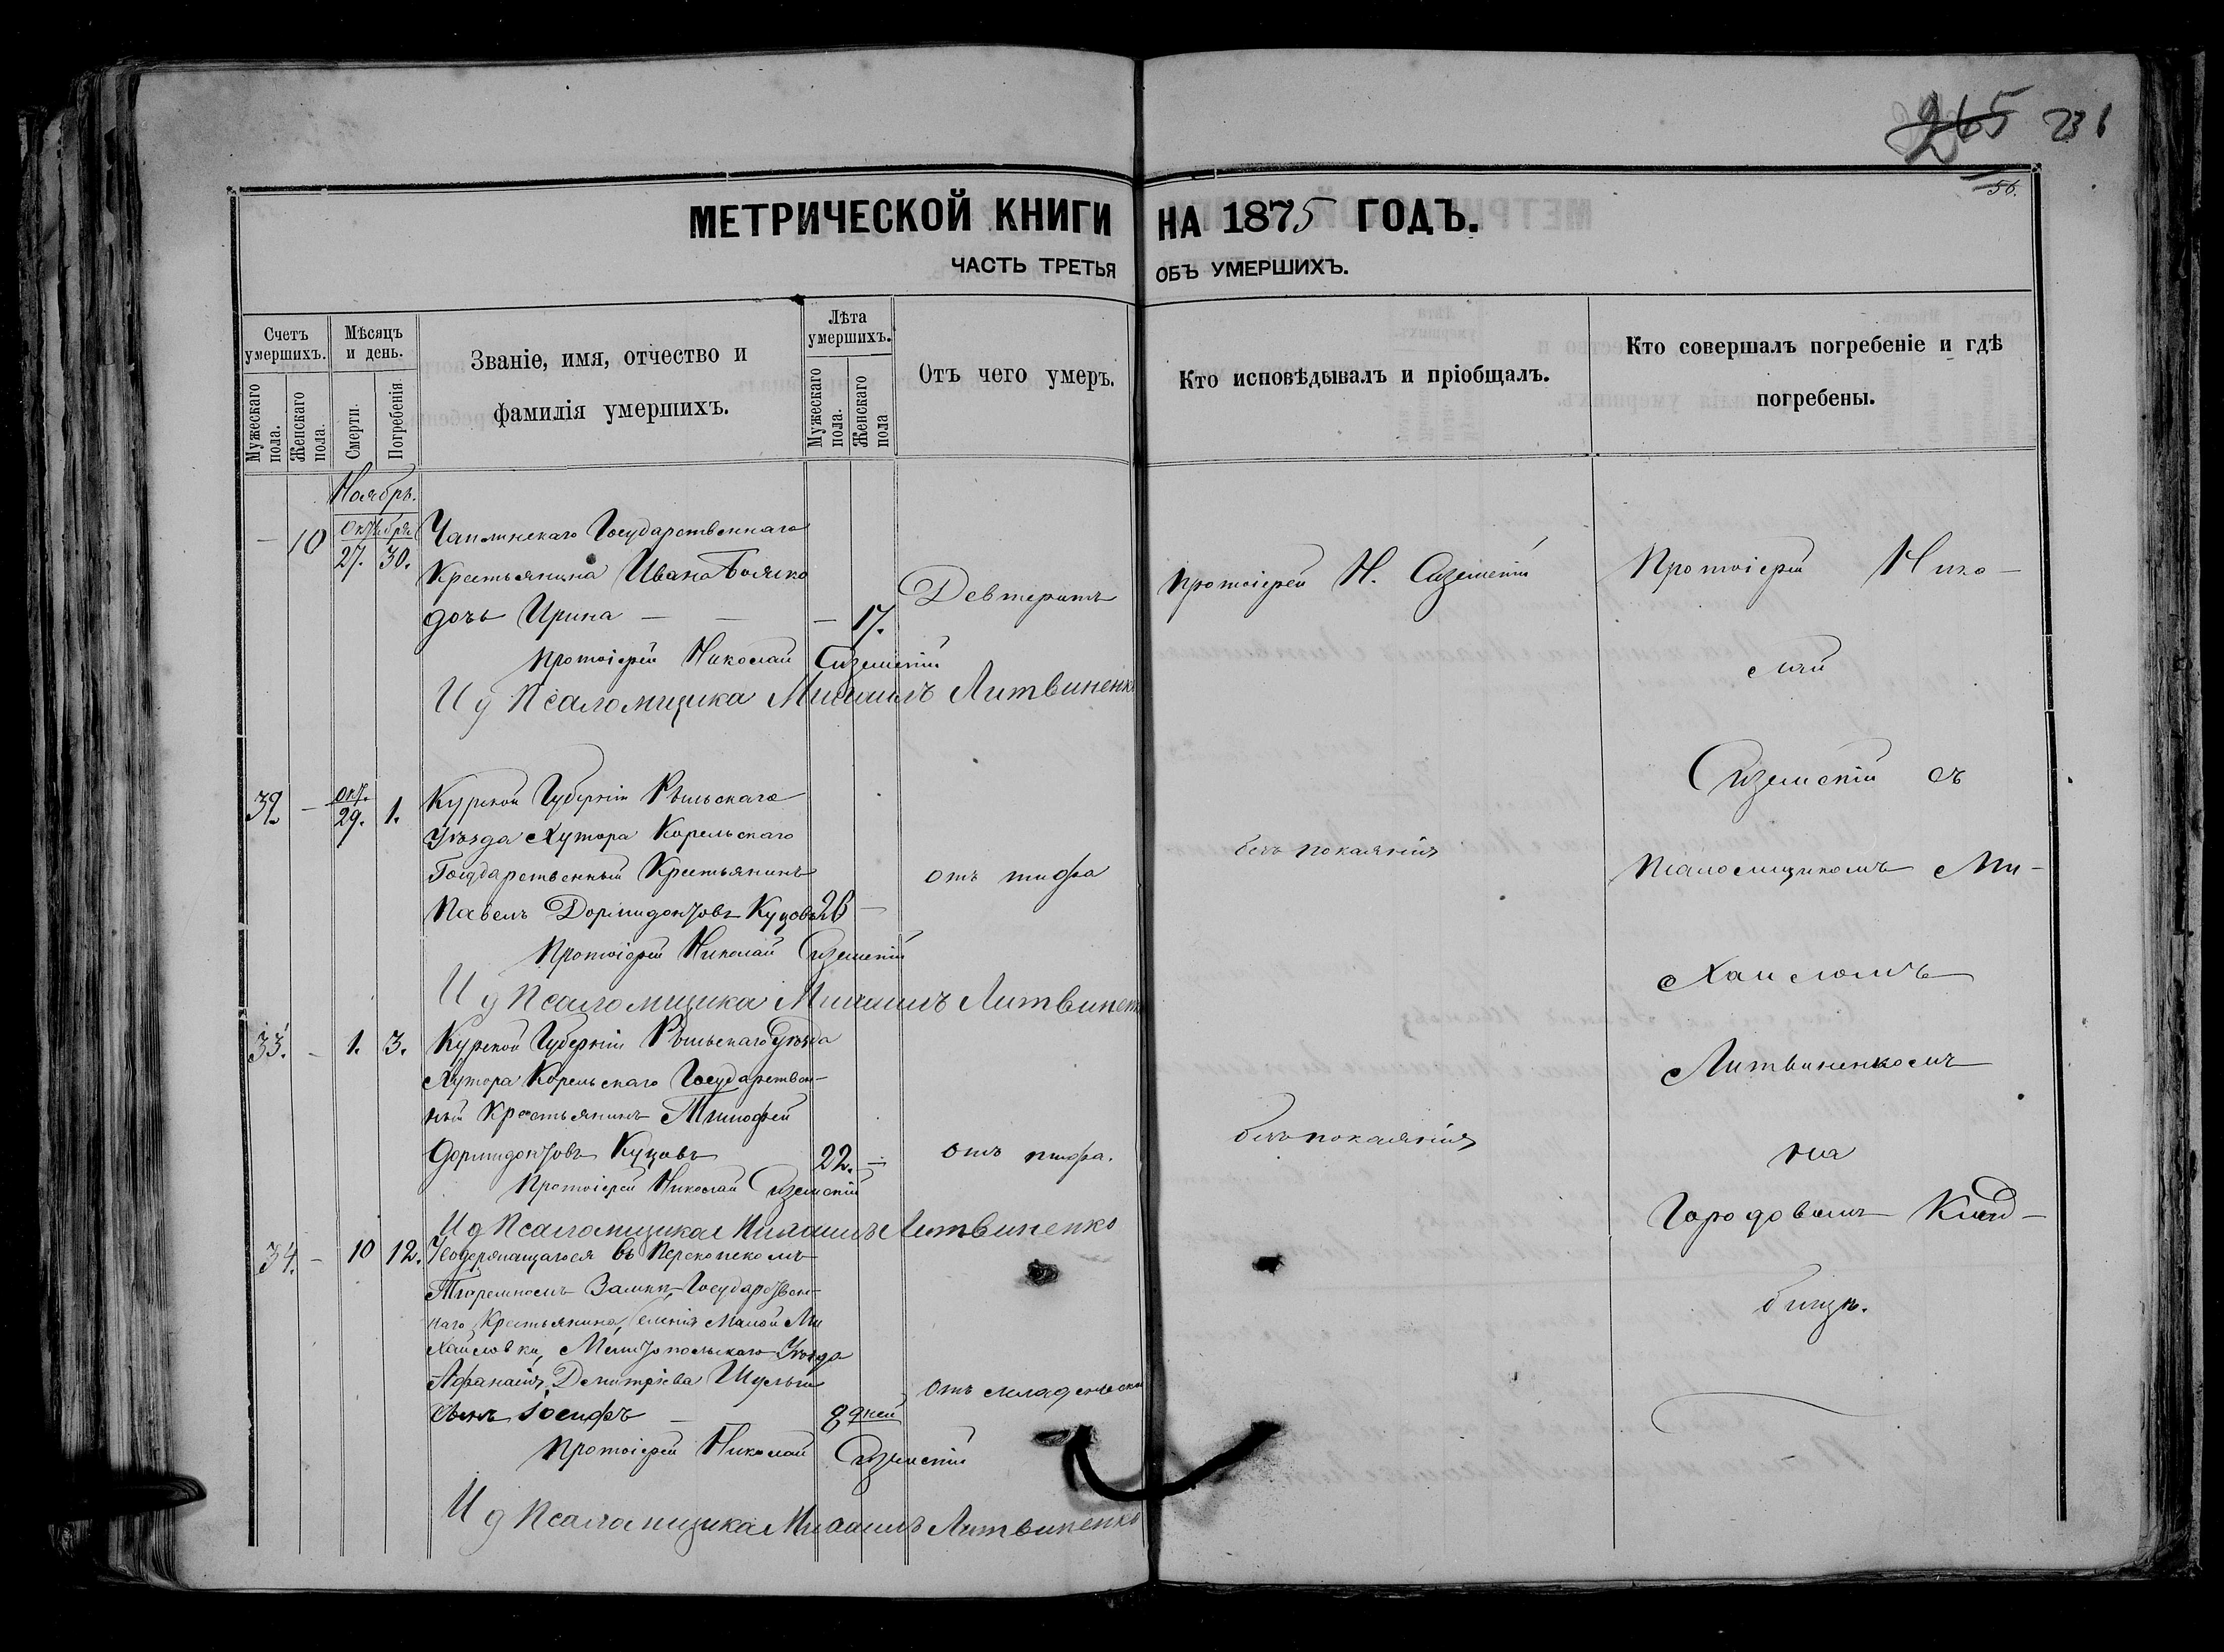 265 231
56.
МЕТРИЧЕСКОЙ КНИГИ НА 1875 ГОДЪ.
ЧАСТЬ ТРЕТЬЯ ОБЪ УМЕРШИХЪ.
Счетъ умершихъ.
Мужескаго пола.
Женскаго пола.
Мѣсяцъ и день.
Смерти.
Погребенія
Званіе, имя, отчество и
фамилія умершихъ.
Лѣта умершихъ.
Мужескаго пола.
Женскаго пола
Отъ чего умеръ.
Кто исповѣдывалъ и пріобщалъ.
Кто совершалъ погребеніе и гдѣ
погребены.
Ноябрь.
Октября
— 10 27. 30. Чаплинскаго Государственнаго
Крестьянина Ивана
дочь Ирина — — — 17. Девтеритъ
Протоіерей Николай Сиземскій
И д Псаломщика Михаилъ Литвиненко
32 — Окт. 29. 1. Курской Губерніи Рыльскаго
Уѣзда Хутора Корельскаго
Государственный Крестьянинъ
Павелъ Дормидонтовъ Куцовъ 26 — отъ тифа
Протоіерей Николай Сиземскій
И д Псаломщика Михаилъ Литвиненко
33. — 1. 3. Курской Губерніи Рыльскаго Уѣзда
Хутора Корельскаго Государствен-
ный Крестьянинъ Тимофей
Дормидонтовъ Куцовъ 22. — отъ тифа.
Протоіерей Николай Сиземскій
И д Псаломщика Михаилъ Литвиненко
34. — 10 12. Содержащагося въ Перекопскомъ
Тюремномъ Замкѣ Государствен-
наго Крестьянина, селенія Малой Ми
хайловки, Мелитопольскаго Уѣзда
Афанасія Демитріева Шульги
сынъ Іосифъ — 8 дней отъ младенческой
Протоіерей Николай Сиземскій
И д Псаломщика Михаилъ Литвиненко
Протоіерей Н. Сиземскій
безъ покаянія
безъ покаянія
Протоіерей Нико-
лай
Сиземскій съ
Псаломщикомъ Ми-
хаиломъ
Литвиненкомъ
на
Городовомъ Клад-
бищѣ.